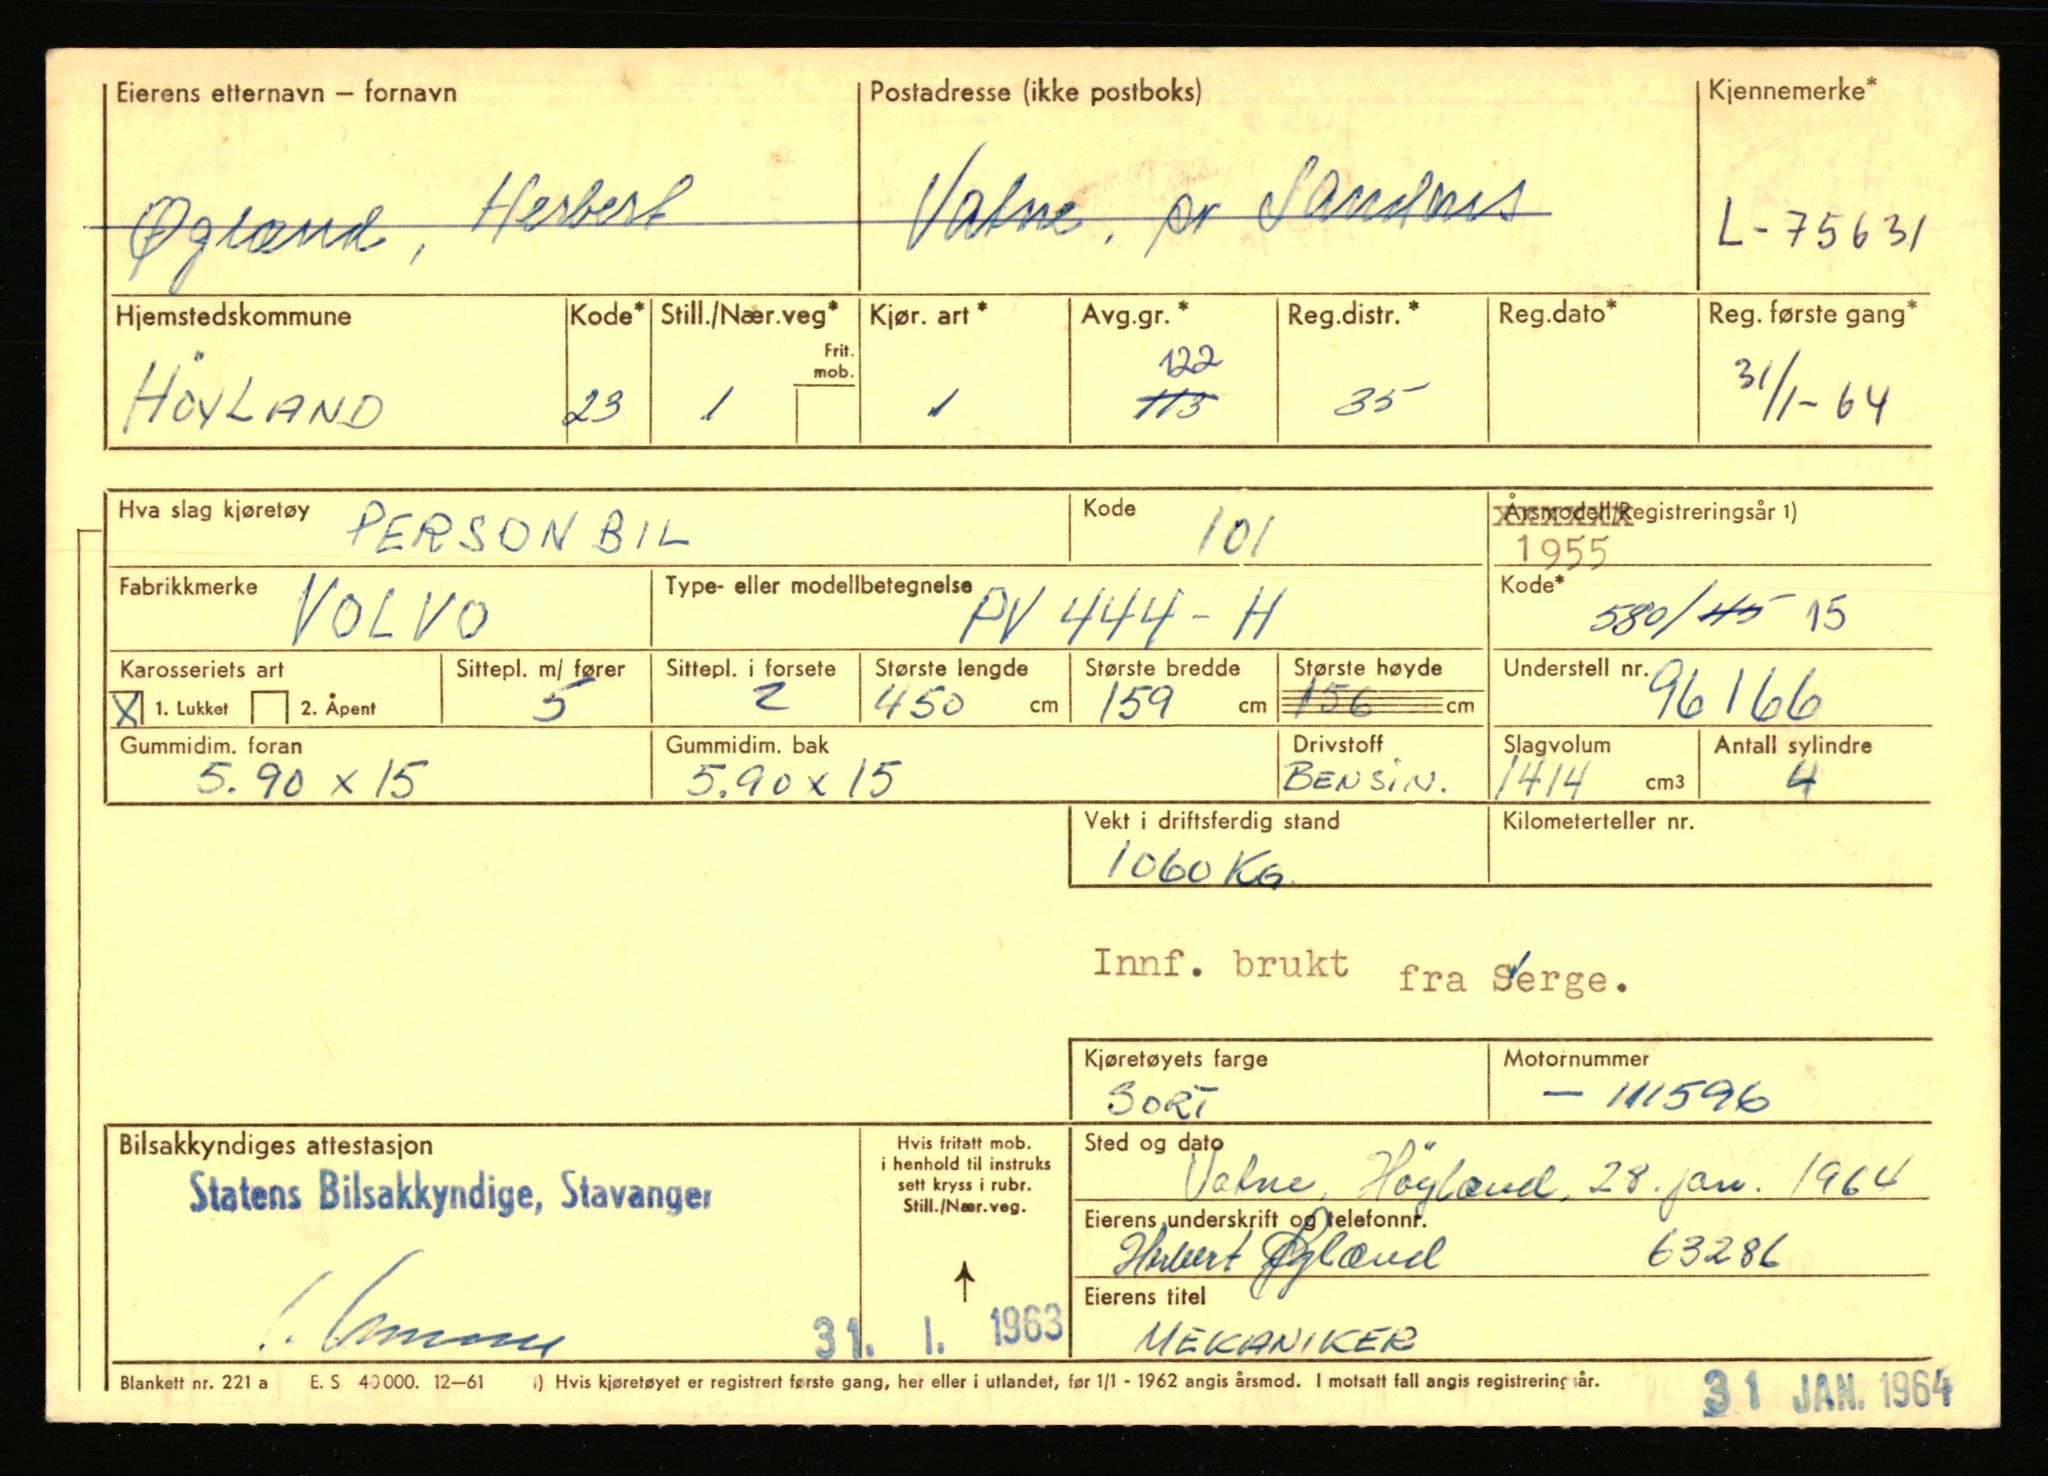 Eierens etternavn – fornavn Postadresse (ikke postboks) Kjennemerke*
Øglænd, Herbert Vatne, pr Sandnes L-75631
Hjemstedskommune Kode* Still./Nær.veg* Kjør. art * Avg.gr. * Reg.distr. * Reg.dato* Reg. første gang*
Frit. mob.
122
HÖYLAND 23 1 1 113 35 31/1-64
Hva slag kjøretøy PERSONBIL Kode 101 Årsmodell/Registreringsår 1)
1955
Fabrikkmerke VOLVO Type- eller modellbetegnelse PV 444-H Kode* 580/ 115 15
Karosseriets art Sittepl. m/ fører Sittepl. i forsete Største lengde Største bredde Største høyde Understell nr. 96166
X 1. Lukket 2. Åpent 5 2 450 cm 159 cm 156 cm
Gummidim. foran Gummidim. bak Drivstoff Slagvolum Antall sylindre
5.90 x 15 5.90 x 15 BENSIN. 1414 cm3 4
Vekt i driftsferdig stand Kilometerteller nr.
1060 KG.
Innf. brukt fra Sverge.
Kjøretøyets farge Motornummer
SORT – 111596
Bilsakkyndiges attestasjon
Statens Bilsakkyndige, Stavanger
31. 1. 1963
Hvis fritatt mob.
i henhold til instruks
sett kryss i rubr.
Still./Nær.veg.
Sted og dato
Vatne, Höyland, 28. jan. 1964
Eierens underskrift og telefonnr.
Herbert Øglænd 63286
Eierens titel
MEKANIKER
Blankett nr. 221 a E. S 40 000. 12–61 1) Hvis kjøretøyet er registrert første gang, her eller i utlandet, før 1/1 - 1962 angis årsmod. I motsatt fall angis registreringsår.
31 JAN. 1964